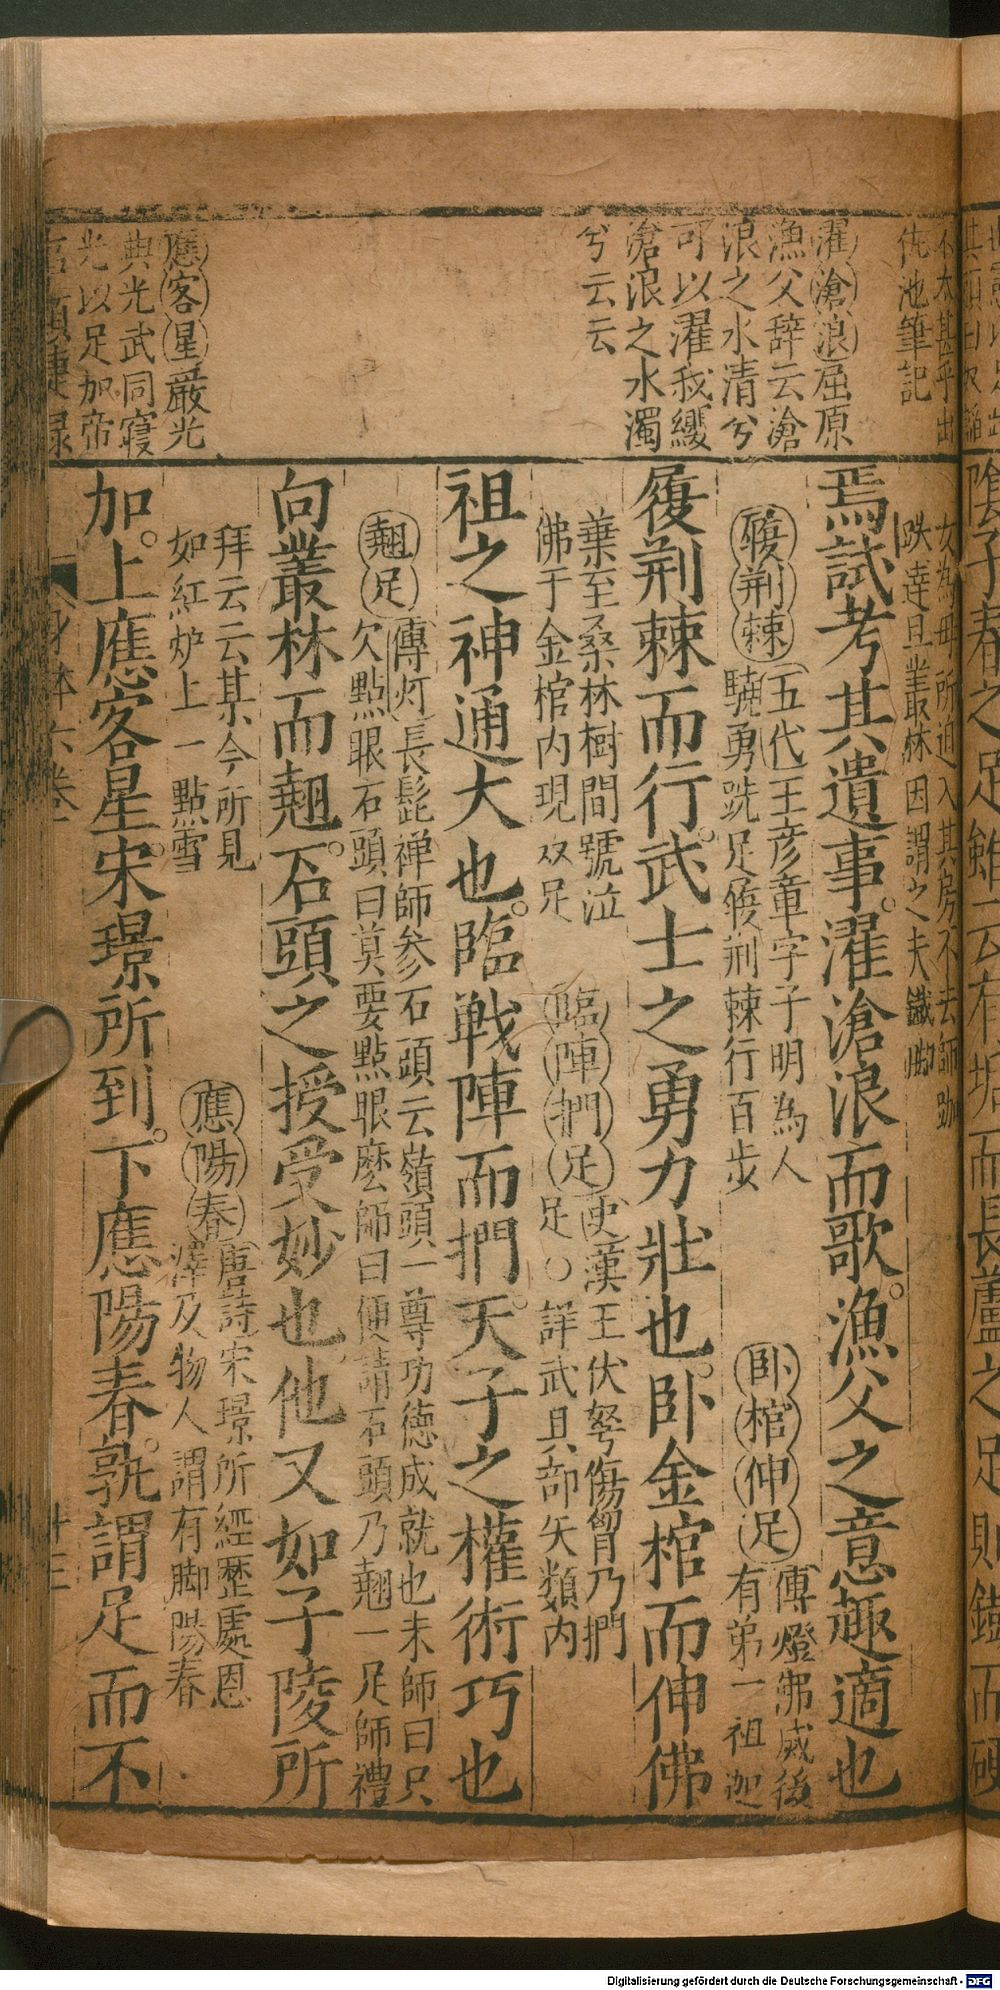 佐池筆記
濯滄浪屈原
漁父辭云滄
浪之水清兮
可以濯我纓
滄浪之水濁
兮云云
應客星嚴光
與光武同寢
光以足加帝
女為毋所迫入其房不去師跏
趺達旦叢林因謂之夫鐵脚
焉試考其遺事濯滄浪而歌漁父之意趣適也
履荆棘
五代王彦章字子明為人
驍勇跣足履荆棘行百步
卧棺伸足
傳燈佛滅後
有弟一祖迦
履荆棘而行武士之勇力壯也卧金棺而伸佛
葉至桑林樹間號泣
佛于金棺内現双足
臨陣捫足
史漢王伏弩傷胷乃捫
足○詳武具部矢類内
祖之神通大也臨戦陣而捫天子之權術巧也
翹足
傳灯長髭禅師参石頭云嶺頭一尊功德成就也未師曰只
欠點眼石頭曰莫要點眼麽師曰便請石頭乃翹一足師禮
向叢林而翹石頭之授受妙也他又如子陵所
拜云云某今所見
如紅炉上一點雪
應陽春
唐詩宋璟所經歷處恩
澤及物人謂有脚陽春
加上應客星宋璟所到下應陽春孰謂足而不
Digitalisierung gefördert durch die Deutsche Forschungsgemeinschaft - DFG